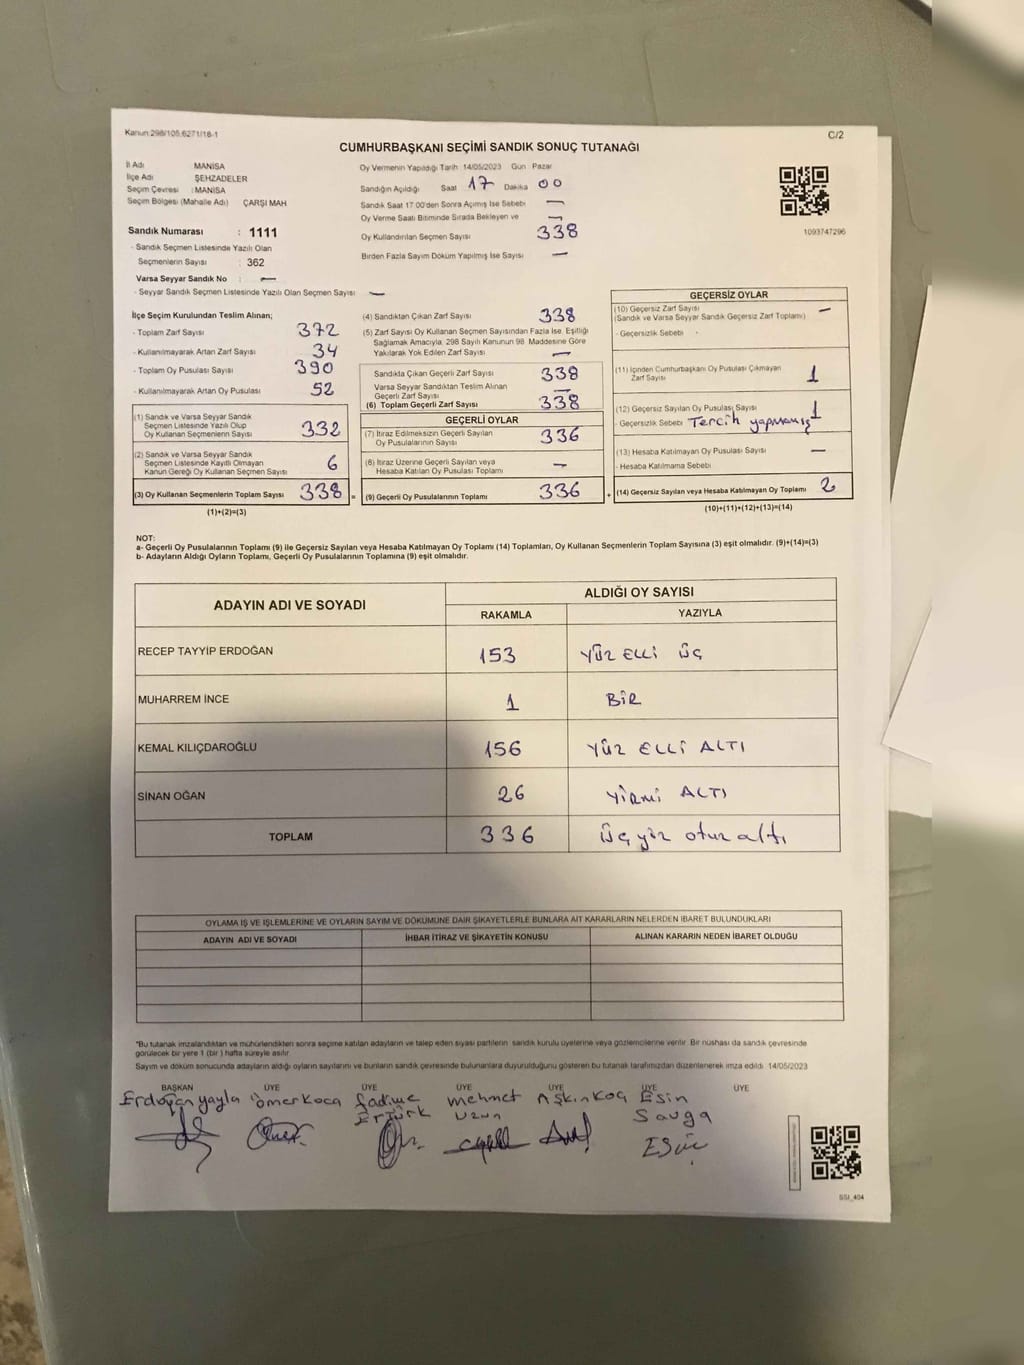 Kanun:298/105,6271/18-1
C/2
CUMHURBAŞKANI SEÇİMİ SANDIK SONUÇ TUTANAĞI
İl Adı MANİSA
İlçe Adı ŞEHZADELER
Seçim Çevresi : MANİSA
Seçim Bölgesi (Mahalle Adı) ÇARŞI MAH
Sandık Numarası : 1111
- Sandık Seçmen Listesinde Yazılı Olan
Seçmenlerin Sayısı : 362
Varsa Seyyar Sandık No : —
- Seyyar Sandık Seçmen Listesinde Yazılı Olan Seçmen Sayısı : —
Oy Vermenin Yapıldığı Tarih 14/05/2023 Gün : Pazar
Sandığın Açıldığı Saat 17 Dakika 00
Sandık Saat 17:00'den Sonra Açımış İse Sebebi —
Oy Verme Saati Bitiminde Sırada Bekleyen ve —
Oy Kullandırılan Seçmen Sayısı 338
Birden Fazla Sayım Döküm Yapılmış İse Sayısı —
1093747296
İlçe Seçim Kurulundan Teslim Alınan;
- Toplam Zarf Sayısı 372
- Kullanılmayarak Artan Zarf Sayısı 34
- Toplam Oy Pusulası Sayısı 390
- Kullanılmayarak Artan Oy Pusulası 52
(1) Sandık ve Varsa Seyyar Sandık
Seçmen Listesinde Yazılı Olup
Oy Kullanan Seçmenlerin Sayısı 332
(2) Sandık ve Varsa Seyyar Sandık
Seçmen Listesinde Kayıtlı Olmayan
Kanun Gereği Oy Kullanan Seçmen Sayısı 6
(3) Oy Kullanan Seçmenlerin Toplam Sayısı 338 =
(1)+(2)=(3)
(4) Sandıktan Çıkan Zarf Sayısı 338
(5) Zarf Sayısı Oy Kullanan Seçmen Sayısından Fazla İse, Eşitliği
Sağlamak Amacıyla, 298 Sayılı Kanunun 98. Maddesine Göre
Yakılarak Yok Edilen Zarf Sayısı —
Sandıkta Çıkan Geçerli Zarf Sayısı 338
Varsa Seyyar Sandıktan Teslim Alınan
Geçerli Zarf Sayısı —
(6) Toplam Geçerli Zarf Sayısı 338
GEÇERLİ OYLAR
(7) İtiraz Edilmeksizin Geçerli Sayılan
Oy Pusulalarının Sayısı 336
(8) İtiraz Üzerine Geçerli Sayılan veya
Hesaba Katılan Oy Pusulası Toplamı —
(9) Geçerli Oy Pusulalarının Toplamı 336 +
GEÇERSİZ OYLAR
(10) Geçersiz Zarf Sayısı —
(Sandık ve Varsa Seyyar Sandık Geçersiz Zarf Toplamı)
- Geçersizlik Sebebi :
(11) İçinden Cumhurbaşkanı Oy Pusulası Çıkmayan
Zarf Sayısı 1
(12) Geçersiz Sayılan Oy Pusulası Sayısı 1
- Geçersizlik Sebebi : Tercih yapmamış
(13) Hesaba Katılmayan Oy Pusulası Sayısı —
- Hesaba Katılmama Sebebi
(14) Geçersiz Sayılan veya Hesaba Katılmayan Oy Toplamı 2
(10)+(11)+(12)+(13)=(14)
NOT:
a- Geçerli Oy Pusulalarının Toplamı (9) ile Geçersiz Sayılan veya Hesaba Katılmayan Oy Toplamı (14) Toplamları, Oy Kullanan Seçmenlerin Toplam Sayısına (3) eşit olmalıdır. (9)+(14)=(3)
b- Adayların Aldığı Oyların Toplamı, Geçerli Oy Pusulalarının Toplamına (9) eşit olmalıdır.
ADAYIN ADI VE SOYADI
ALDIĞI OY SAYISI
RAKAMLA YAZIYLA
RECEP TAYYİP ERDOĞAN 153 YÜZ ELLİ ÜÇ
MUHARREM İNCE 1 BİR
KEMAL KILIÇDAROĞLU 156 YÜZ ELLİ ALTI
SİNAN OĞAN 26 YİRMİ ALTI
TOPLAM 336 üç yüz otuz altı
OYLAMA İŞ VE İŞLEMLERİNE VE OYLARIN SAYIM VE DÖKÜMÜNE DAİR ŞİKAYETLERLE BUNLARA AİT KARARLARIN NELERDEN İBARET BULUNDUKLARI
ADAYIN ADI VE SOYADI İHBAR İTİRAZ VE ŞİKAYETİN KONUSU ALINAN KARARIN NEDEN İBARET OLDUĞU
*Bu tutanak imzalandıktan ve mühürlendikten sonra seçime katılan adayların ve talep eden siyasi partilerin sandık kurulu üyelerine veya gözlemcilerine verilir. Bir nüshası da sandık çevresinde
görülecek bir yere 1 (bir) hafta süreyle asılır.
Sayım ve döküm sonucunda adayların aldığı oyların sayılarını ve bunların sandık çevresinde bulunanlara duyurulduğunu gösteren bu tutanak tarafımızdan düzenlenerek imza edildi. 14/05/2023
BAŞKAN ÜYE ÜYE ÜYE ÜYE ÜYE ÜYE
Erdoğan yayla ömer koca fadime Ertürk mehmet uzun Aşkın koç Esin Savga
Esin
SSI_404